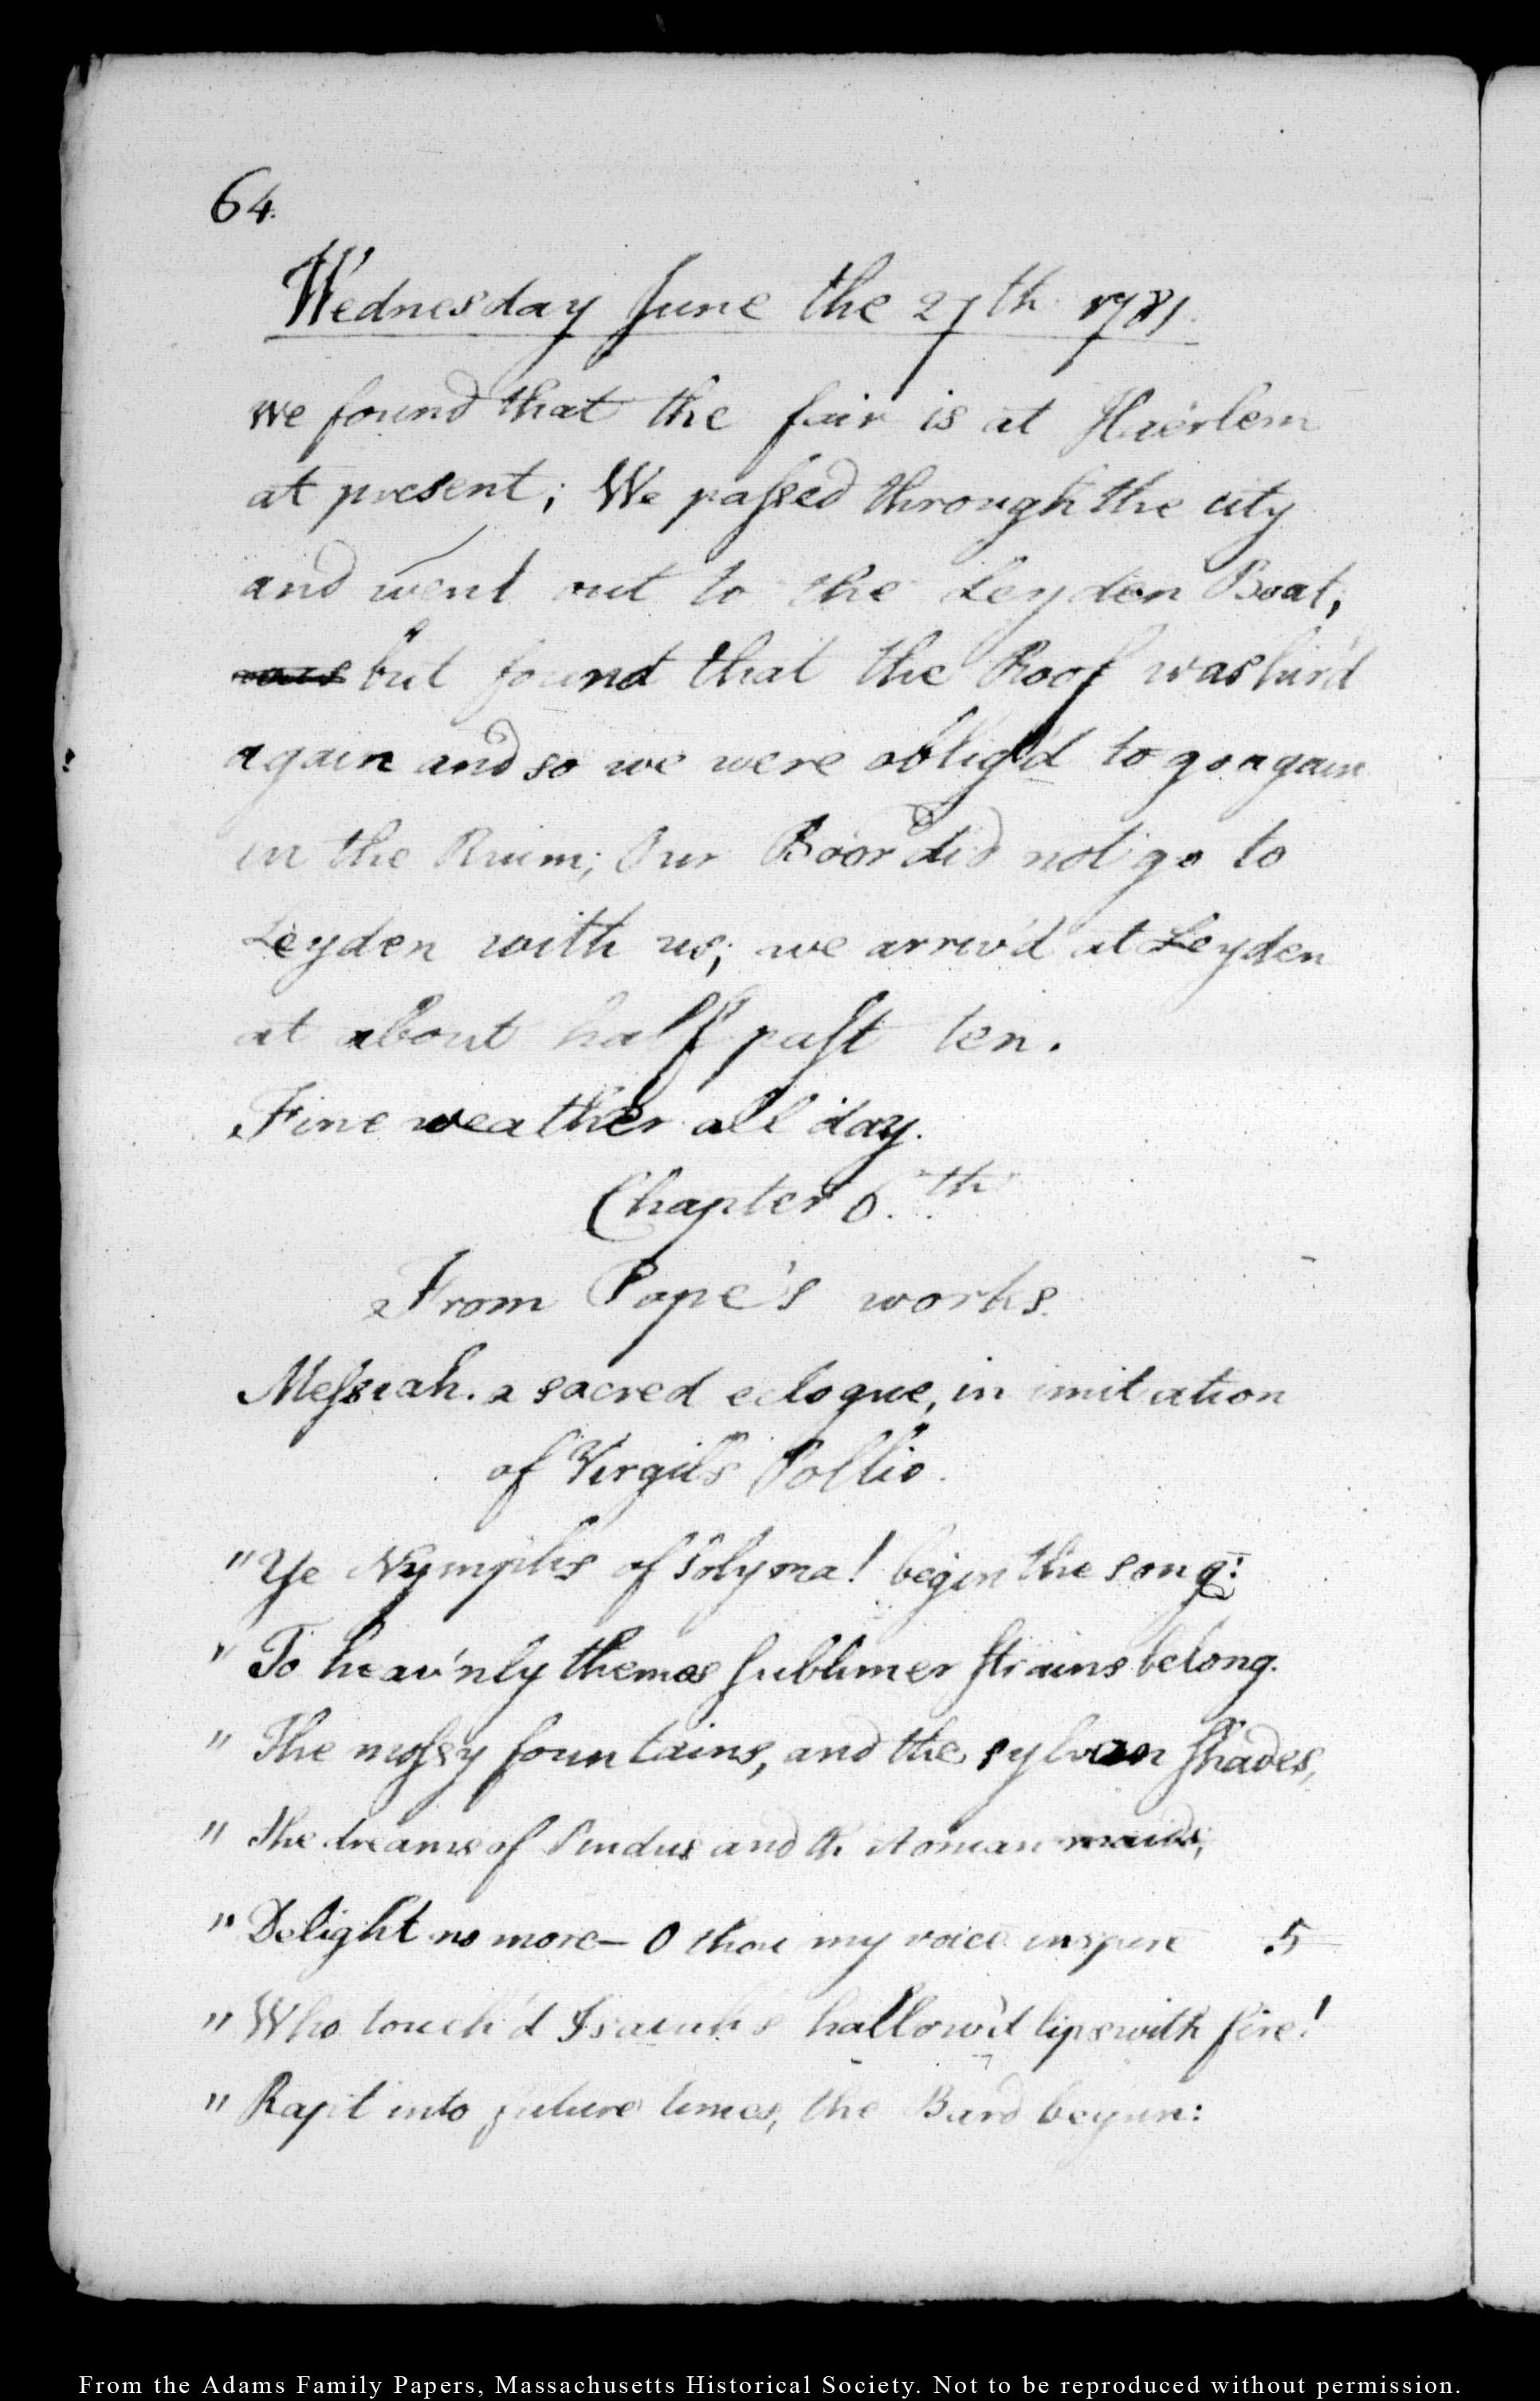 64.
Wednesday June the 27th 1781.
we found that the fair is at Haerlem
at present; We paſsed through the city
and went out to the Leyden Boat,
but found that the Roof was hir'd
again and so we were oblig'd to go again
in the Ruim; Our Boor did not go to
Leyden with us; we arriv'd at Leyden
at about half paſt ten.
Fine weather all day.
Chapter 6.th
From Pope's works.
Meſsiah. a sacred eclogue, in imitation
of Virgil's Pollio.
"Ye Nymphs of Solyma! begin the song:
" To heav'nly themes ſublimer ſtrains belong.
" The moſsy fountains, and the sylvan ſhades,
" The dreams of Pindus and th' Aonian maids,
" Delight no more— O thou my voice inspire 5
" Who touch'd Isaiah's hallow'd lips with fire!
" Rapt into future times, the Bard begun:
From the Adams Family Papers, Massachusetts Historical Society. Not to be reproduced without permission.